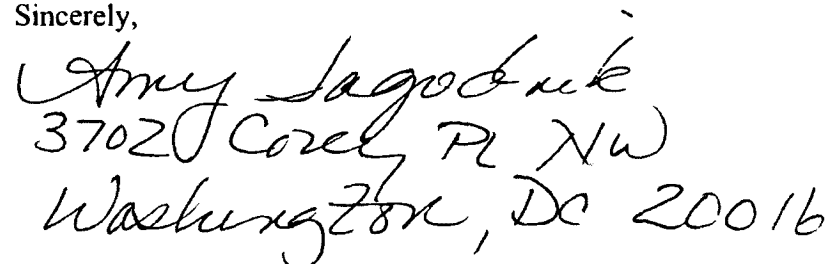 Sincerely,
Amy Sagodnik
3702 Corey Pl NW
Washington, DC 20016